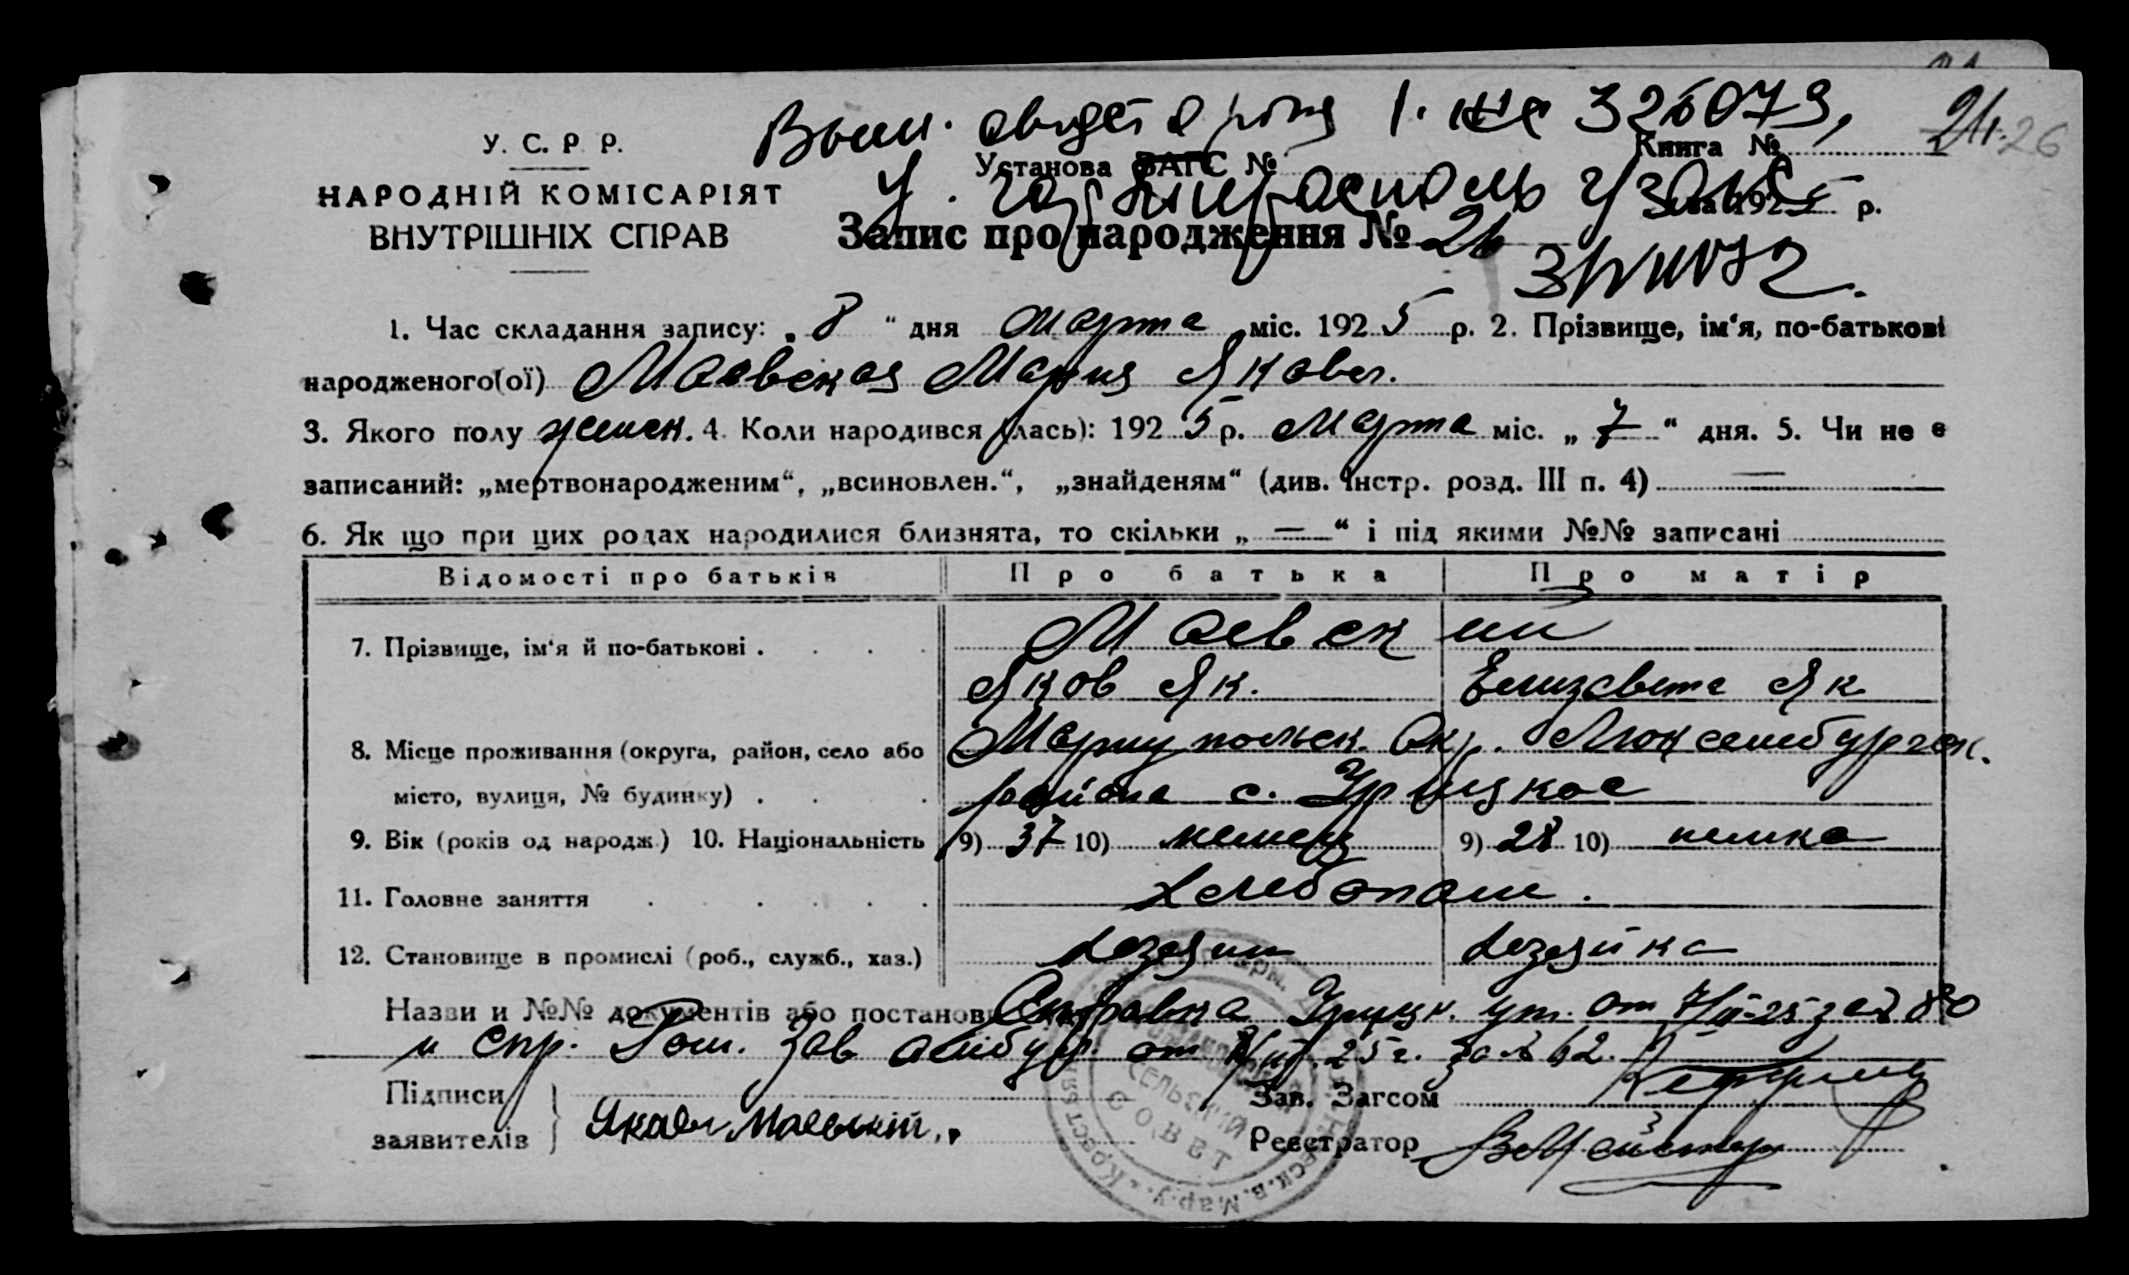 21. 26
Выи. свидет о рожд 1. 326073,
У. С. Р. Р.
Установа ЗАГС №
Книга №
НАРОДНІЙ КОМІСАРІЯТ
ВНУТРІШНІХ СПРАВ
За 1925 р.
Запис про народження № 26
1. Час складання запису: „8“ дня марта міс. 1925 р. 2. Прізвище, ім‘я, по-батькові
народженого(ої) Маевская Мария Яковл.
3. Якого полу женск. 4. Коли народився (лась): 1925 р. Марта міс. „7“ дня. 5. Чи не є
записаний: „мертвонародженим“, „всиновлен.“, „знайденям“ (див. інстр. розд. III п. 4) —
6. Як що при цих родах народилися близнята, то скільки „—“ і під якими №№ записані
Відомості про батьків Про батька Про матір
7. Прізвище, ім‘я й по-батькові . . . . Маевский
Яков Як. Елизавета Як
8. Місце проживання (округа, район, село або Мариупольск. Окр. Люксембургск.
місто, вулиця, № будинку) . . . района с. Урицкое
9. Вік (років од народж.) 10. Національність 9) 37 10) немец 9) 28 10) немка
11. Головне заняття . . . . . . Хлебопаш.
12. Становище в промислі (роб., служб., хаз.) хозяин хозяйка
Назви и №№ документів або постанов Справка Урицк. уп. от 7/II-25 за № 80
и спр. от 25 г. за № 62.
Підписи
заявителів
Яков Маевский.
Зав. Загсом
Реєстратор
СЕЛЬСКИЙ
СОВЕТ